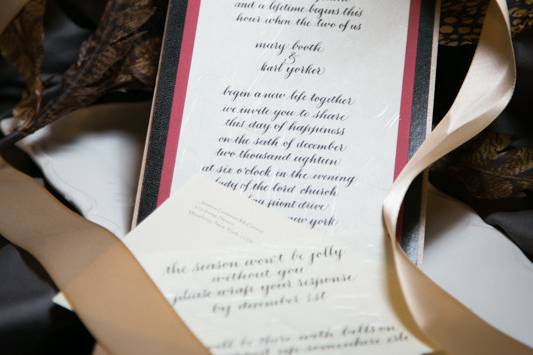 and a lifetime begins this
hour when the two of us
mary booth
&
karl yorker
begin a new life together
we invite you to share
this day of happiness
on the sixth of december
two thousand eighteen
at six o'clock in the evening
lady of the lord church
drive
new york
the season won't be jolly
without you
please wrap your response
by december 1st
will be there with bells on
somewhere else